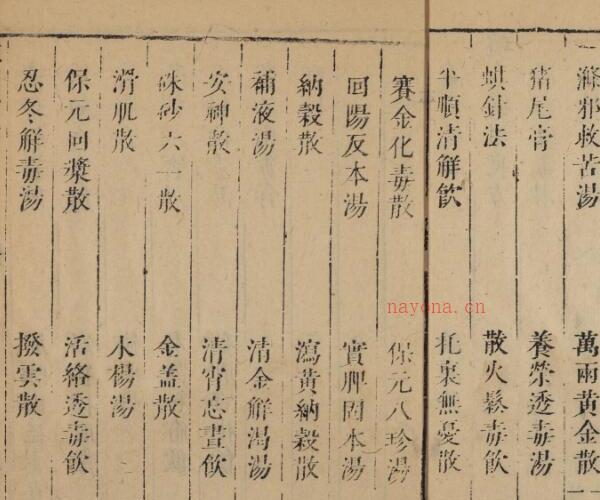 滌邪救苦湯　萬兩黃金散
猪尾膏　養榮透毒湯
蜞針法　散火鬆毒飲
平順清解飲　托裏無憂散
賽金化毒散　保元八珍湯
回陽反本湯　實脾固本湯
納穀散　瀉黃納穀散
補液湯　清金解渴湯
安神散　清宵忘晝飲
硃砂六一散　金盖散
滑肌散　水楊湯
保元回漿散　活絡透毒飲
忍冬解毒湯　撥雲散
nayona.cn